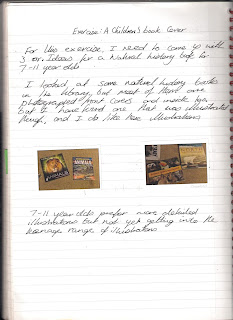 Exercise: A Children's book Cover
For this exercise, I need to come up with
3 or Ideas for a Natural history book for
7-11 year olds
I looked at some natural history books
in the library, but most of them are
photographed front covers and inside
but I have found one that was illustrated
though, and I do like the illustrations
ANIMALS
7-11 year olds prefer more detailed
illustrations but not yet getting into the
teenage range of illustrations